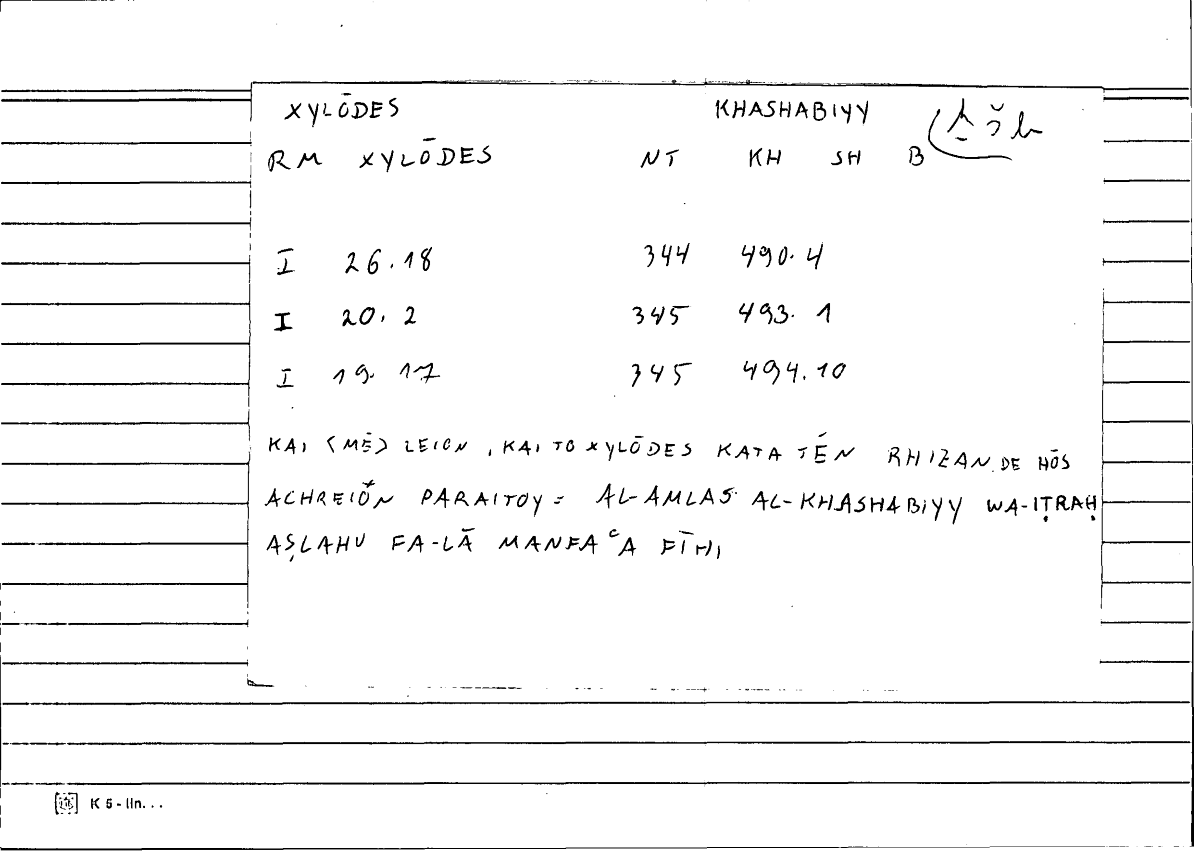 XYLŌDES KHASHABIYY
RM XYLŌDES NT KH SH B
I 26.18 344 490.4
I 20.2 345 493.1
I 19.17 345 494.10
KAI <MĒ> LEION, KAI TO XYLŌDES KATA TĒN RHIZAN DE HŌS
ACHREION PARAITOY = AL-AMLAS AL-KHASHABIYY WA-IṬRAḤ
AṢLAHU FA-LĀ MANFAʿA FĪHI
K 5 - lin. . .